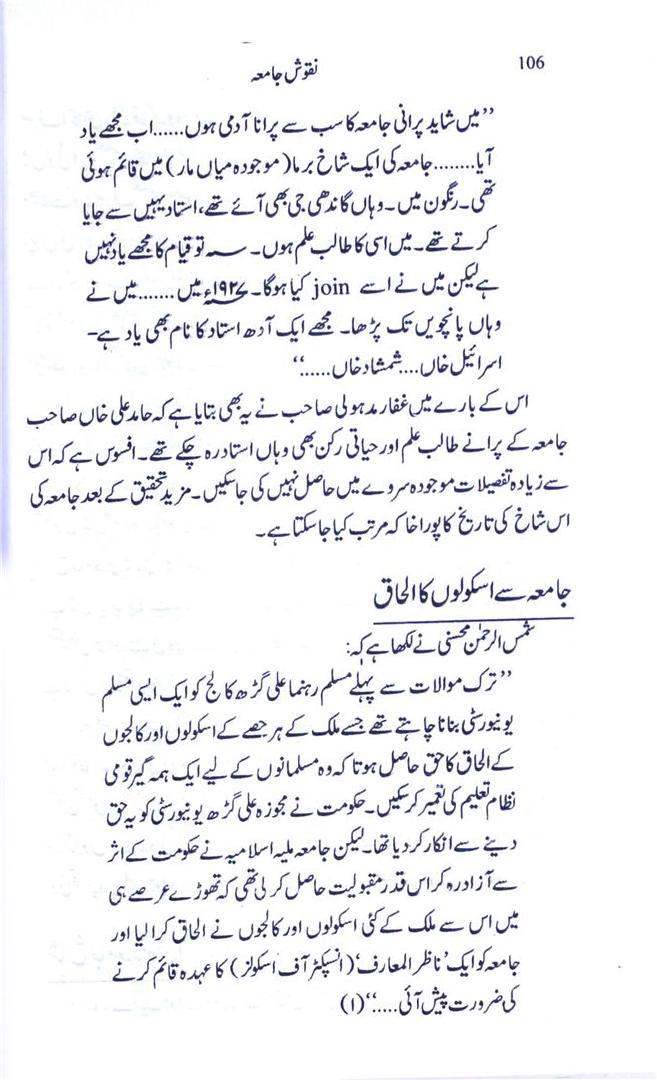 106
نقوش جامعہ
’’میں شاید پرانی جامعہ کا سب سے پرانا آدمی ہوں......اب مجھے یاد
آیا........جامعہ کی ایک شاخ برما (موجودہ میاں مار) میں قائم ہوئی
تھی۔ رنگون میں۔ وہاں گاندھی جی بھی آئے تھے، استاد یہیں سے جایا
کرتے تھے۔ میں اسی کا طالب علم ہوں۔ سنہ تو قیام کا مجھے یاد نہیں
ہے لیکن میں نے اسے join کیا ہوگا۔ ۱۹۲۷ء میں.......میں نے
وہاں پانچویں تک پڑھا۔ مجھے ایک آدھ استاد کا نام بھی یاد ہے-
اسرائیل خاں....شمشاد خاں......‘‘
اس کے بارے میں غفار مدہولی صاحب نے یہ بھی بتایا ہے کہ حامد علی خاں صاحب
جامعہ کے پرانے طالب علم اور حیاتی رکن بھی وہاں استاد رہ چکے تھے۔ افسوس ہے کہ اس
سے زیادہ تفصیلات موجودہ سروے میں حاصل نہیں کی جاسکیں۔ مزید تحقیق کے بعد جامعہ کی
اس شاخ کی تاریخ کا پورا خاکہ مرتب کیا جاسکتا ہے۔
جامعہ سے اسکولوں کا الحاق
شمس الرحمٰن محسنی نے لکھا ہے کہ:
’’ترک موالات سے پہلے مسلم رہنما علی گڑھ کالج کو ایک ایسی مسلم
یونیورسٹی بنانا چاہتے تھے جسے ملک کے ہر حصے کے اسکولوں اور کالجوں
کے الحاق کا حق حاصل ہوتا کہ وہ مسلمانوں کے لیے ایک ہمہ گیر قومی
نظام تعلیم کی تعمیر کرسکیں۔ حکومت نے مجوزہ علی گڑھ یونیورسٹی کو یہ حق
دینے سے انکار کر دیا تھا۔ لیکن جامعہ ملیہ اسلامیہ نے حکومت کے اثر
سے آزاد رہ کر اس قدر مقبولیت حاصل کرلی تھی کہ تھوڑے عرصے ہی
میں اس سے ملک کے کئی اسکولوں اور کالجوں نے الحاق کرالیا اور
جامعہ کو ایک ’ناظر المعارف‘ (انسپکٹر آف اسکولز) کا عہدہ قائم کرنے
کی ضرورت پیش آئی.....‘‘(۱)